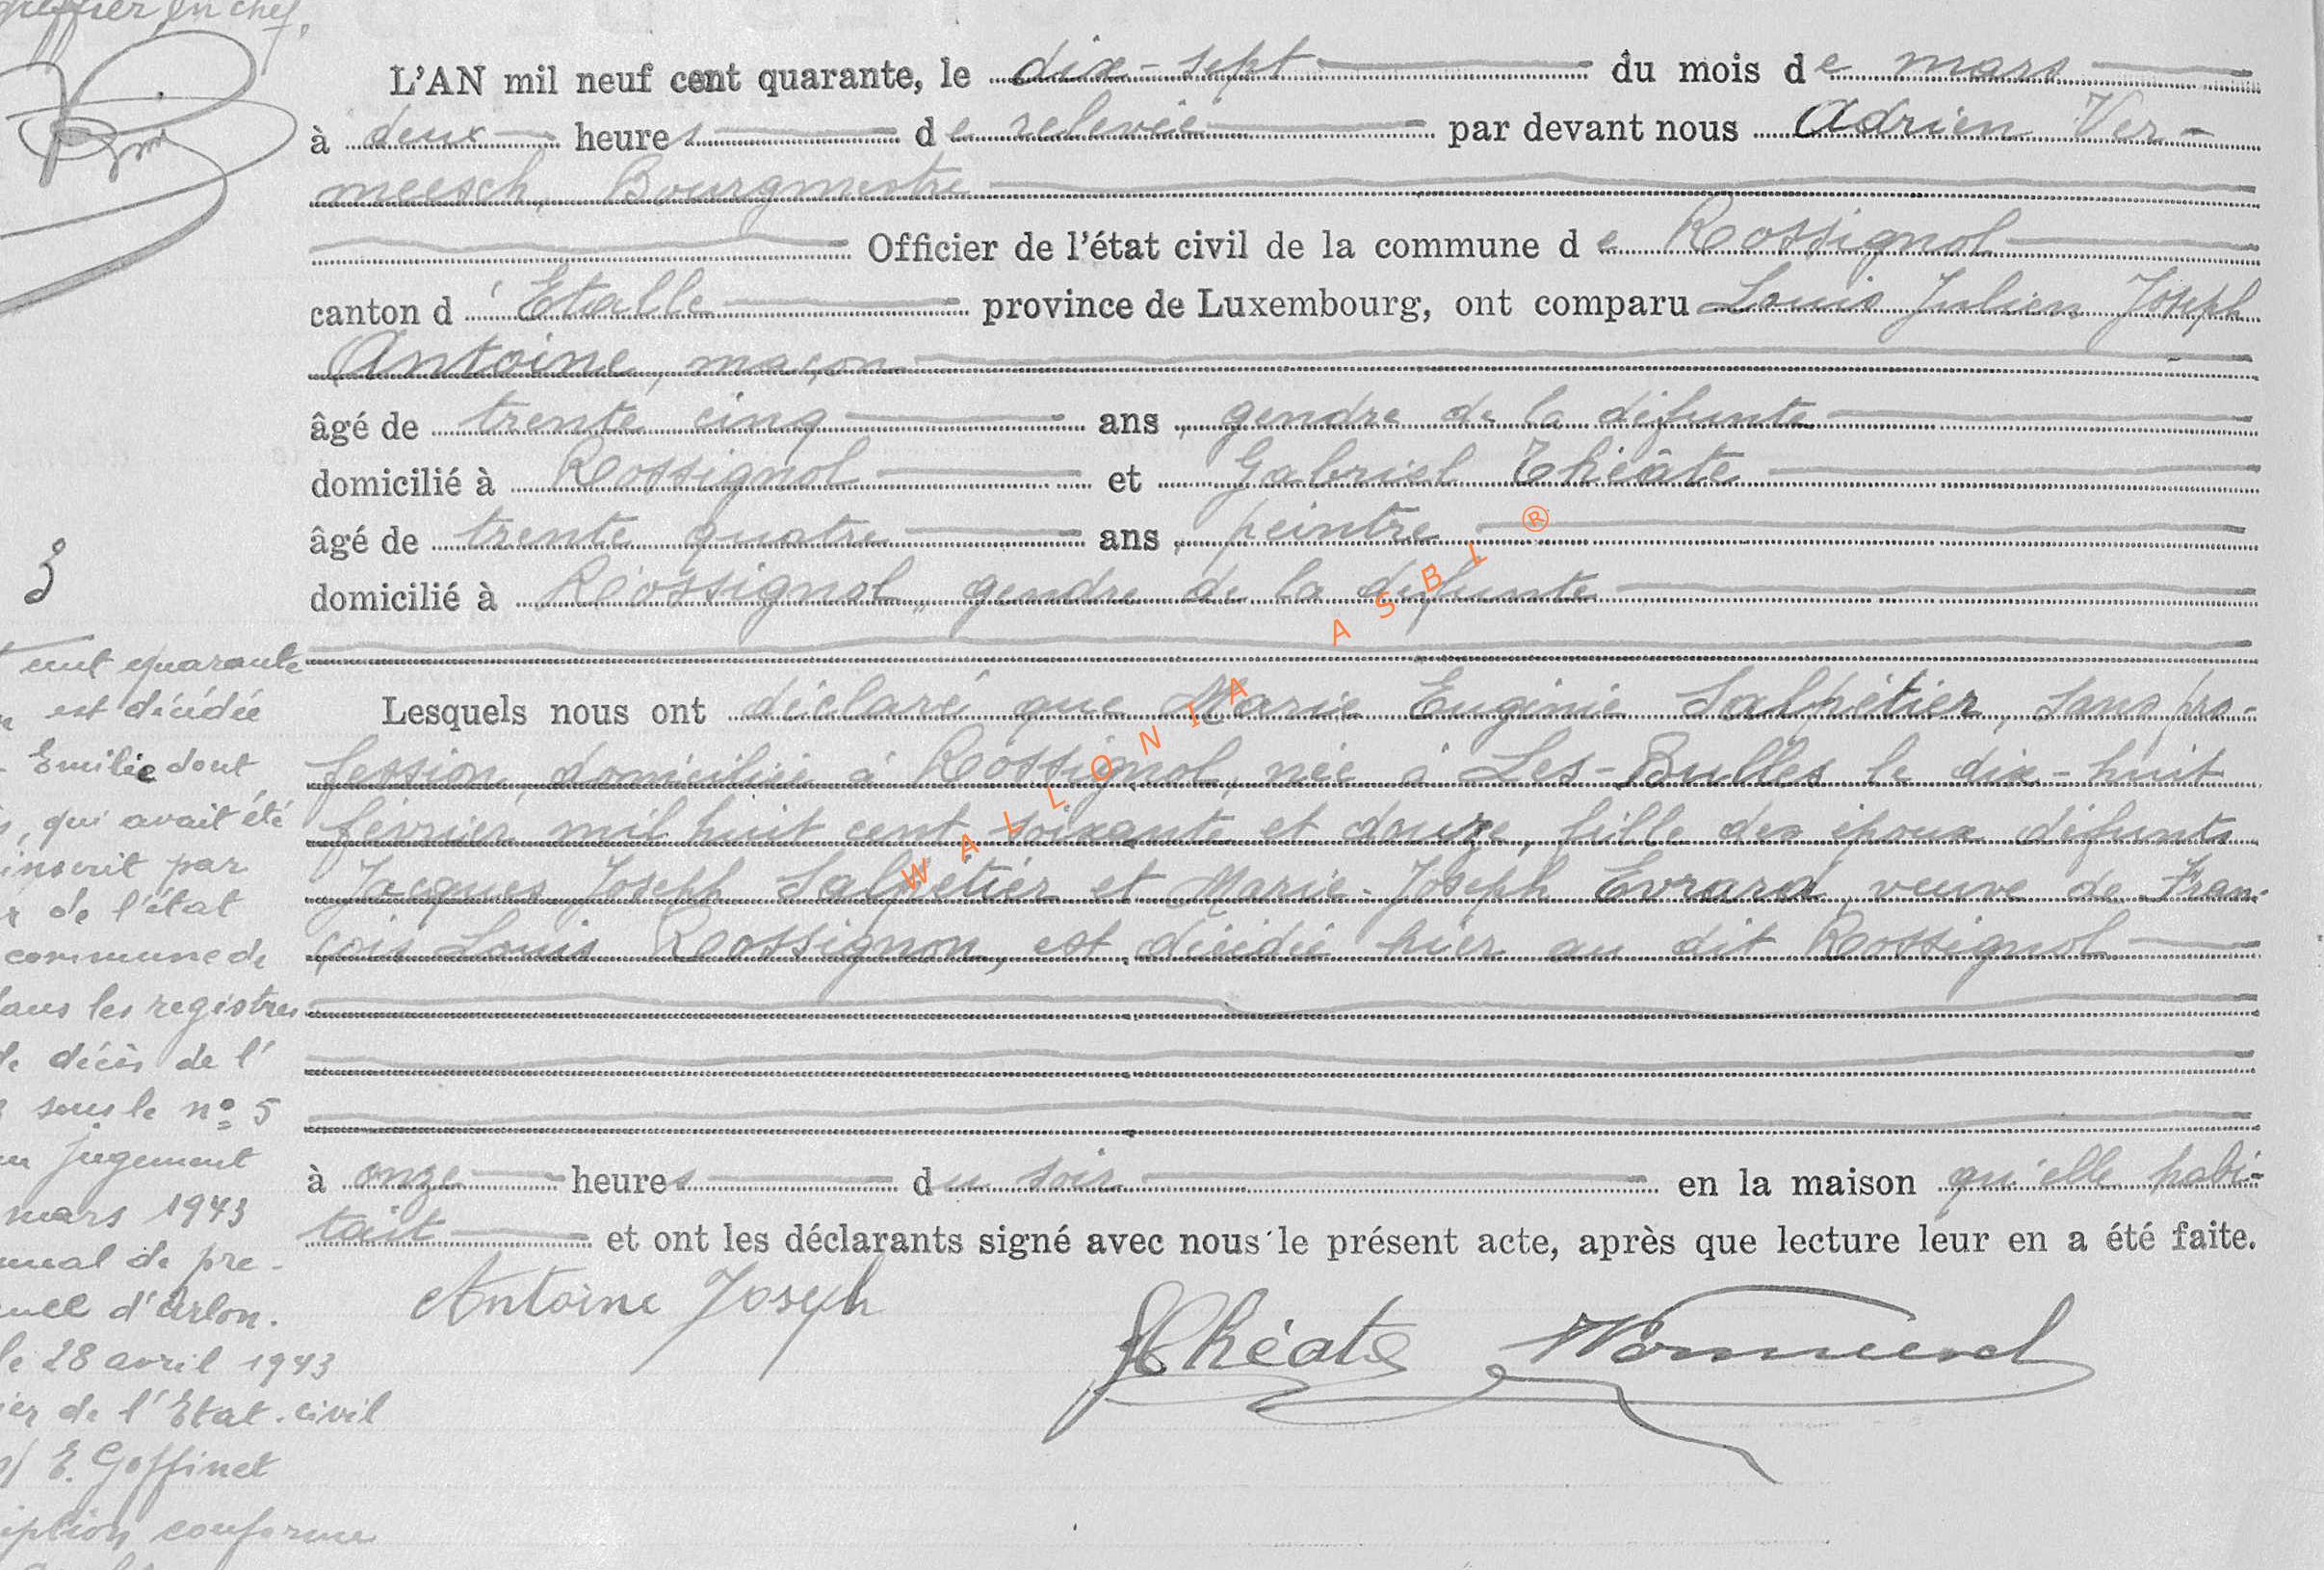 greffier en chef.
L'AN mil neuf cent quarante, le dix-sept du mois de mars
à deux heures de relevée par devant nous Adrien Ver-
meesch, Bourgmestre
Officier de l'état civil de la commune de Rossignol
canton d'Etalle province de Luxembourg, ont comparu Louis Julien Joseph
Antoine, maçon
âgé de trente cinq ans, gendre de la défunte
domicilié à Rossignol et Gabriel Théâte
âgé de trente quatre ans, peintre
domicilié à Rossignol, gendre de la défunte
Lesquels nous ont déclaré que Marie Eugénie Salpétier, sans pro-
fession, domiciliée à Rossignol, née à Les-Bulles le dix-huit
février mil huit cent soixante et douze, fille des époux défunts
Jacques Joseph Salpétier et Marie-Joseph Evrard, veuve de Fran-
çois Louis Rossignon, est décédée hier au dit Rossignol
à onze heures du soir en la maison qu'elle habi-
tait et ont les déclarants signé avec nous le présent acte, après que lecture leur en a été faite.
Antoine Joseph
Théate
3
cent quarante
est décédée
Emilie dont
qui avait été
inscrit par
de l'état
commune de
dans les registres
de décès de l'
sous le nº 5
jugement
mars 1943
de pre-
d'Arlon.
le 28 avril 1943
de l'Etat-civil
E. Goffinet
conforme
WALLONIA ASBL ®